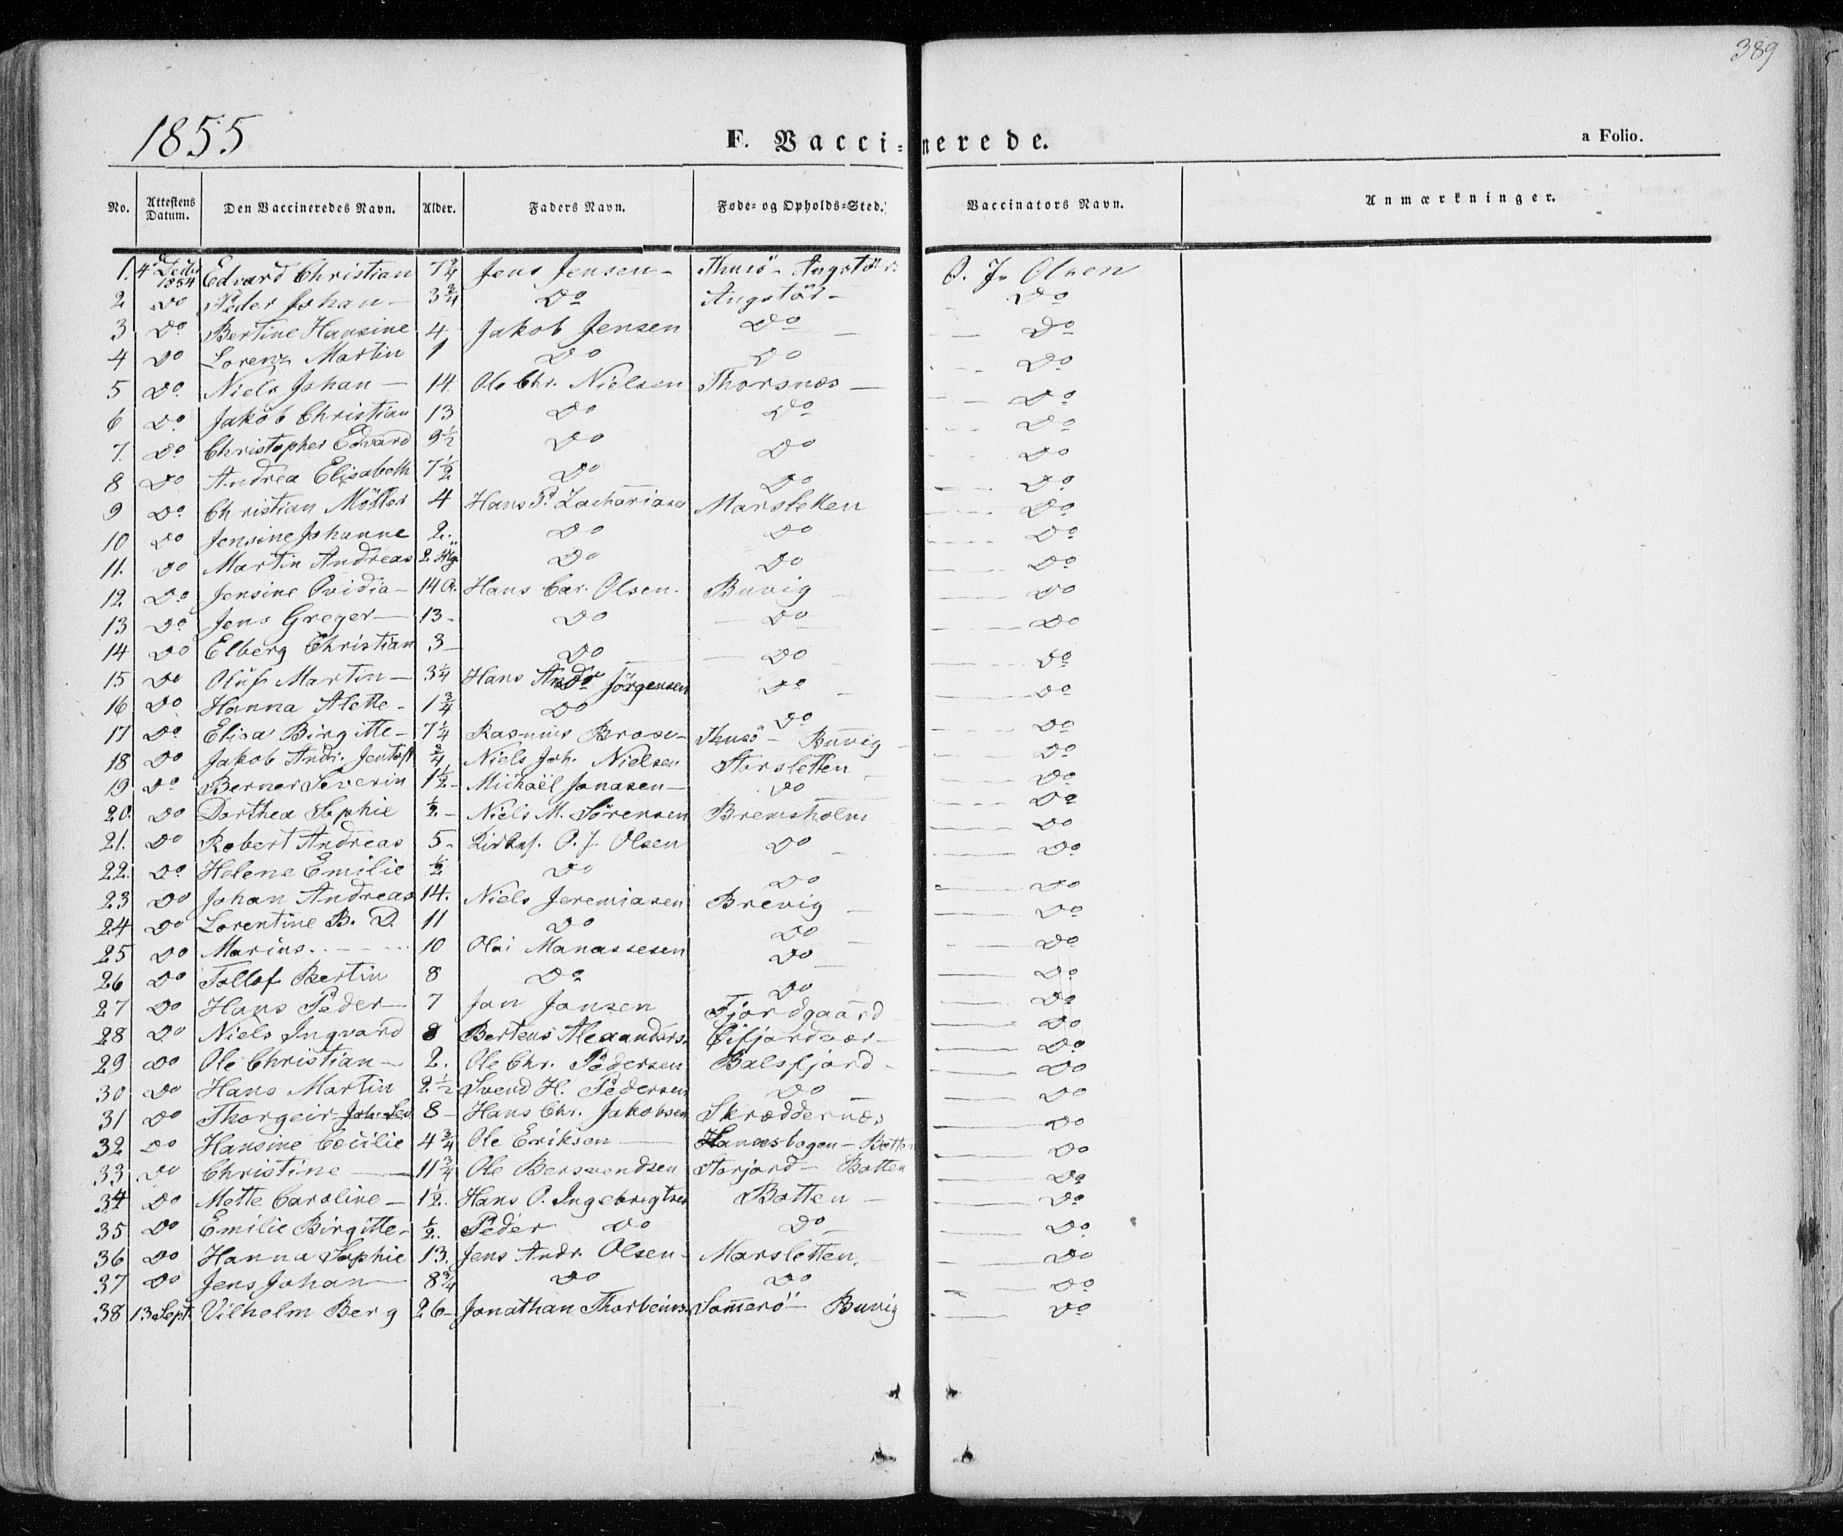 389
1855
F. Vaccinerede.
a Folio.
No. Attestens Datum. Den Vaccineredes Navn. Alder. Faders Navn. Føde- og Opholds-Sted. Vaccinators Navn. Anmærkninger.
1. 4 1854 Edvard Christian 7 3/4 Jens Jensen - Thusö - O. J. Olsen
2 Do Peder Johan - 3 3/4 Do Angstöd - Do
3 Do Bertine Hansine 4 Jakob Jensen Do Do
4 Do Lorenz Martin 1 Do Do Do
5 Do Niels Johan - 14 Ole Chr. Nielsen Thorsnæs - Do
6 Do Jakob Christian 13 Do Do Do
7. Do Christopher Edvard 9 1/2 Do Do Do
8 Do Andrea Elisabeth 7 1/2 Do Do Do
9 Do Christian Möller 4 Hans P. Zachariasen Marsletten Do
10 Do Jensine Johanne 2. Do Do Do
11. Do Martin Andreas 2 Do Do Do
12 Do Jensine Ovidia - 14 A. Hans Car. Olsen. Buvig Do
13 Do Jens Greger - 13 - Do Do Do
14 Do Elberg Christian 3 - Do Do Do
15 Do Oluf Martin - 3 1/4 Hans Andr. Jörgensen Do Do
16 Do Hanna Alette - 1 3/4 Do Do Do
17 Do Elisa Birgitte - 7 1/4 Rasmus Brose - Thusö - Buvig Do
18 Do Jakob Andr. Jentoft 3/4 Niels Joh. Nielsen Storsletten Do
19 Do Berner Severin 1 1/2 - Michaël Jonasen - Do Do
20. Do Dorthea Sophie 1/2 - Niels M. Sörensen Bremsholm Do
21. Do Robert Andreas 5 - Kirkes. O. J. Olsen Do Do
22. Do Helene Emilie 1/2 Do Do Do
23 Do Johan Andreas 14. Niels Jeremiasen Brevig Do
24 Do Lorentine B. D. 11 Do Do Do
25 Do Marius. 10 Olai Manassesen Do Do
26 Do Tollef Bertin 8 Do Do Do
27 Do Hans Peder - 7 Jon Jonsen Fjordgaard Do
28 Do Niels Ingvard 8 Bertens Alexanders. Öifjordvær - Do
29 Do Ole Christian - 2. Ole Chr. Pedersen Balsfjord - Do
30 Do Hans Martin 2 1/2 Svend H. Pedersen Do Do
31 Do Thorgeir 8 - Hans Chr. Jakobsen Skræddernæs Do
32 Do Hansine Cecilie 4 3/4 Ole Eriksen - Do
33 Do Christine - 11 3/4 Ole Bersvendsen Storjord - Botten Do
34 Do Mette Caroline - 1 1/2. Hans O. Ingebrigtsen Botten - Do
35 Do Emilie Birgitte - 1/2. Peder Do Do Do
36 Do Hanna Sophie 13. Jens Andr. Olsen - Marsletten. Do
37 Do Jens Johan - 8 3/4 Do Do Do
38 13 Sept. Vilhelm Berg 26 - Jonathan Thorbeins. Somerö - Buvig Do